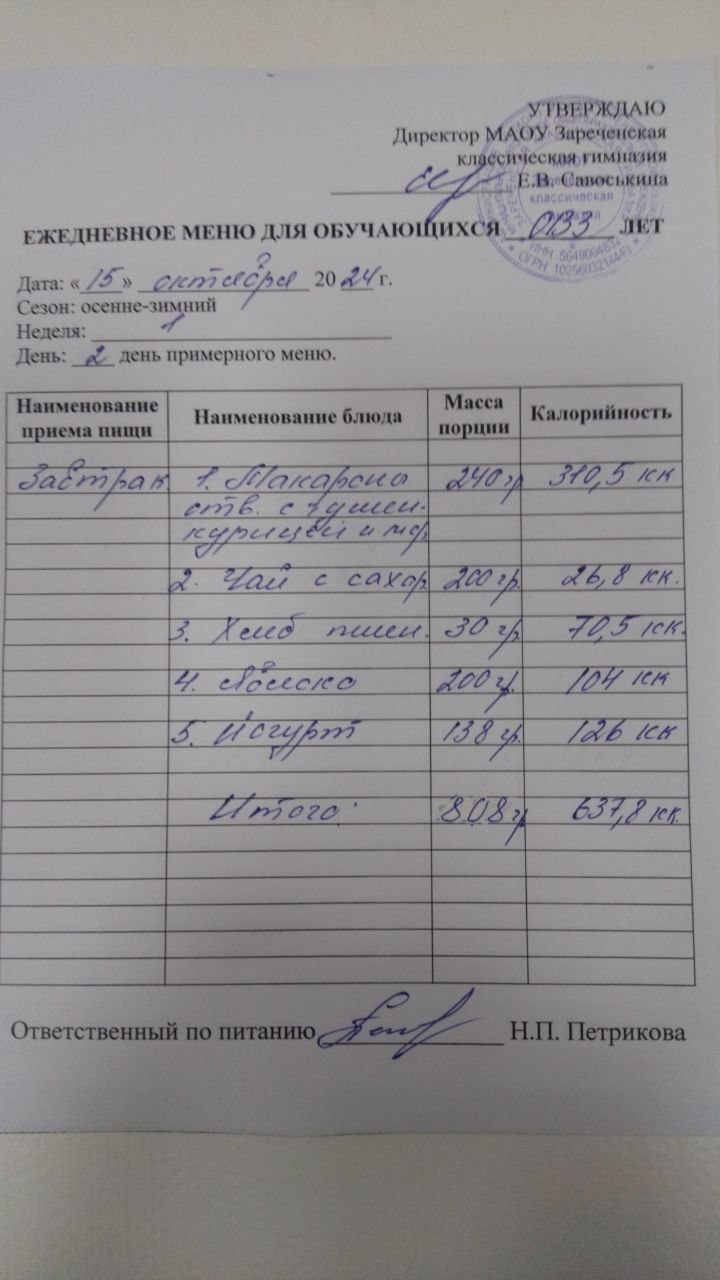 УТВЕРЖДАЮ
Директор МАОУ Зареченская
классическая гимназия
Е.В. Савоськина
ЕЖЕДНЕВНОЕ МЕНЮ ДЛЯ ОБУЧАЮЩИХСЯ ОВЗ ЛЕТ
Дата: «15» октября 2024 г.
Сезон: осенне-зимний
Неделя: 1
День: 2 день примерного меню.
Наименование приема пищи Наименование блюда Масса порции Калорийность
Завтрак 1. Макароны 240 гр 310,5 кк
отв. с тушен.
курицей и
2. Чай с сахар. 200 гр. 26,8 кк.
3. Хлеб пшен. 30 гр. 70,5 кк.
4. Яблоко 200 гр. 104 кк
5. Йогурт 138 гр. 126 кк
Итого: 808 гр 637,8 кк.
Ответственный по питанию Н.П. Петрикова
классическая
ИНН 5649004832
ОГРН 1025603214449